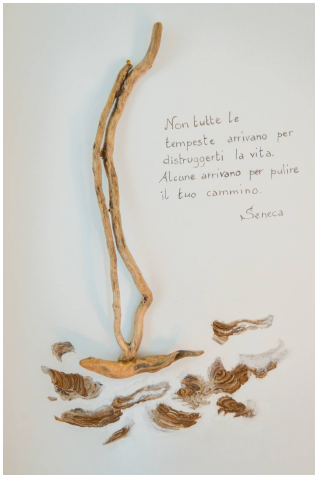 Non tutte le
tempeste arrivano per
distruggerti la vita.
Alcune arrivano per pulire
il tuo cammino.
Seneca